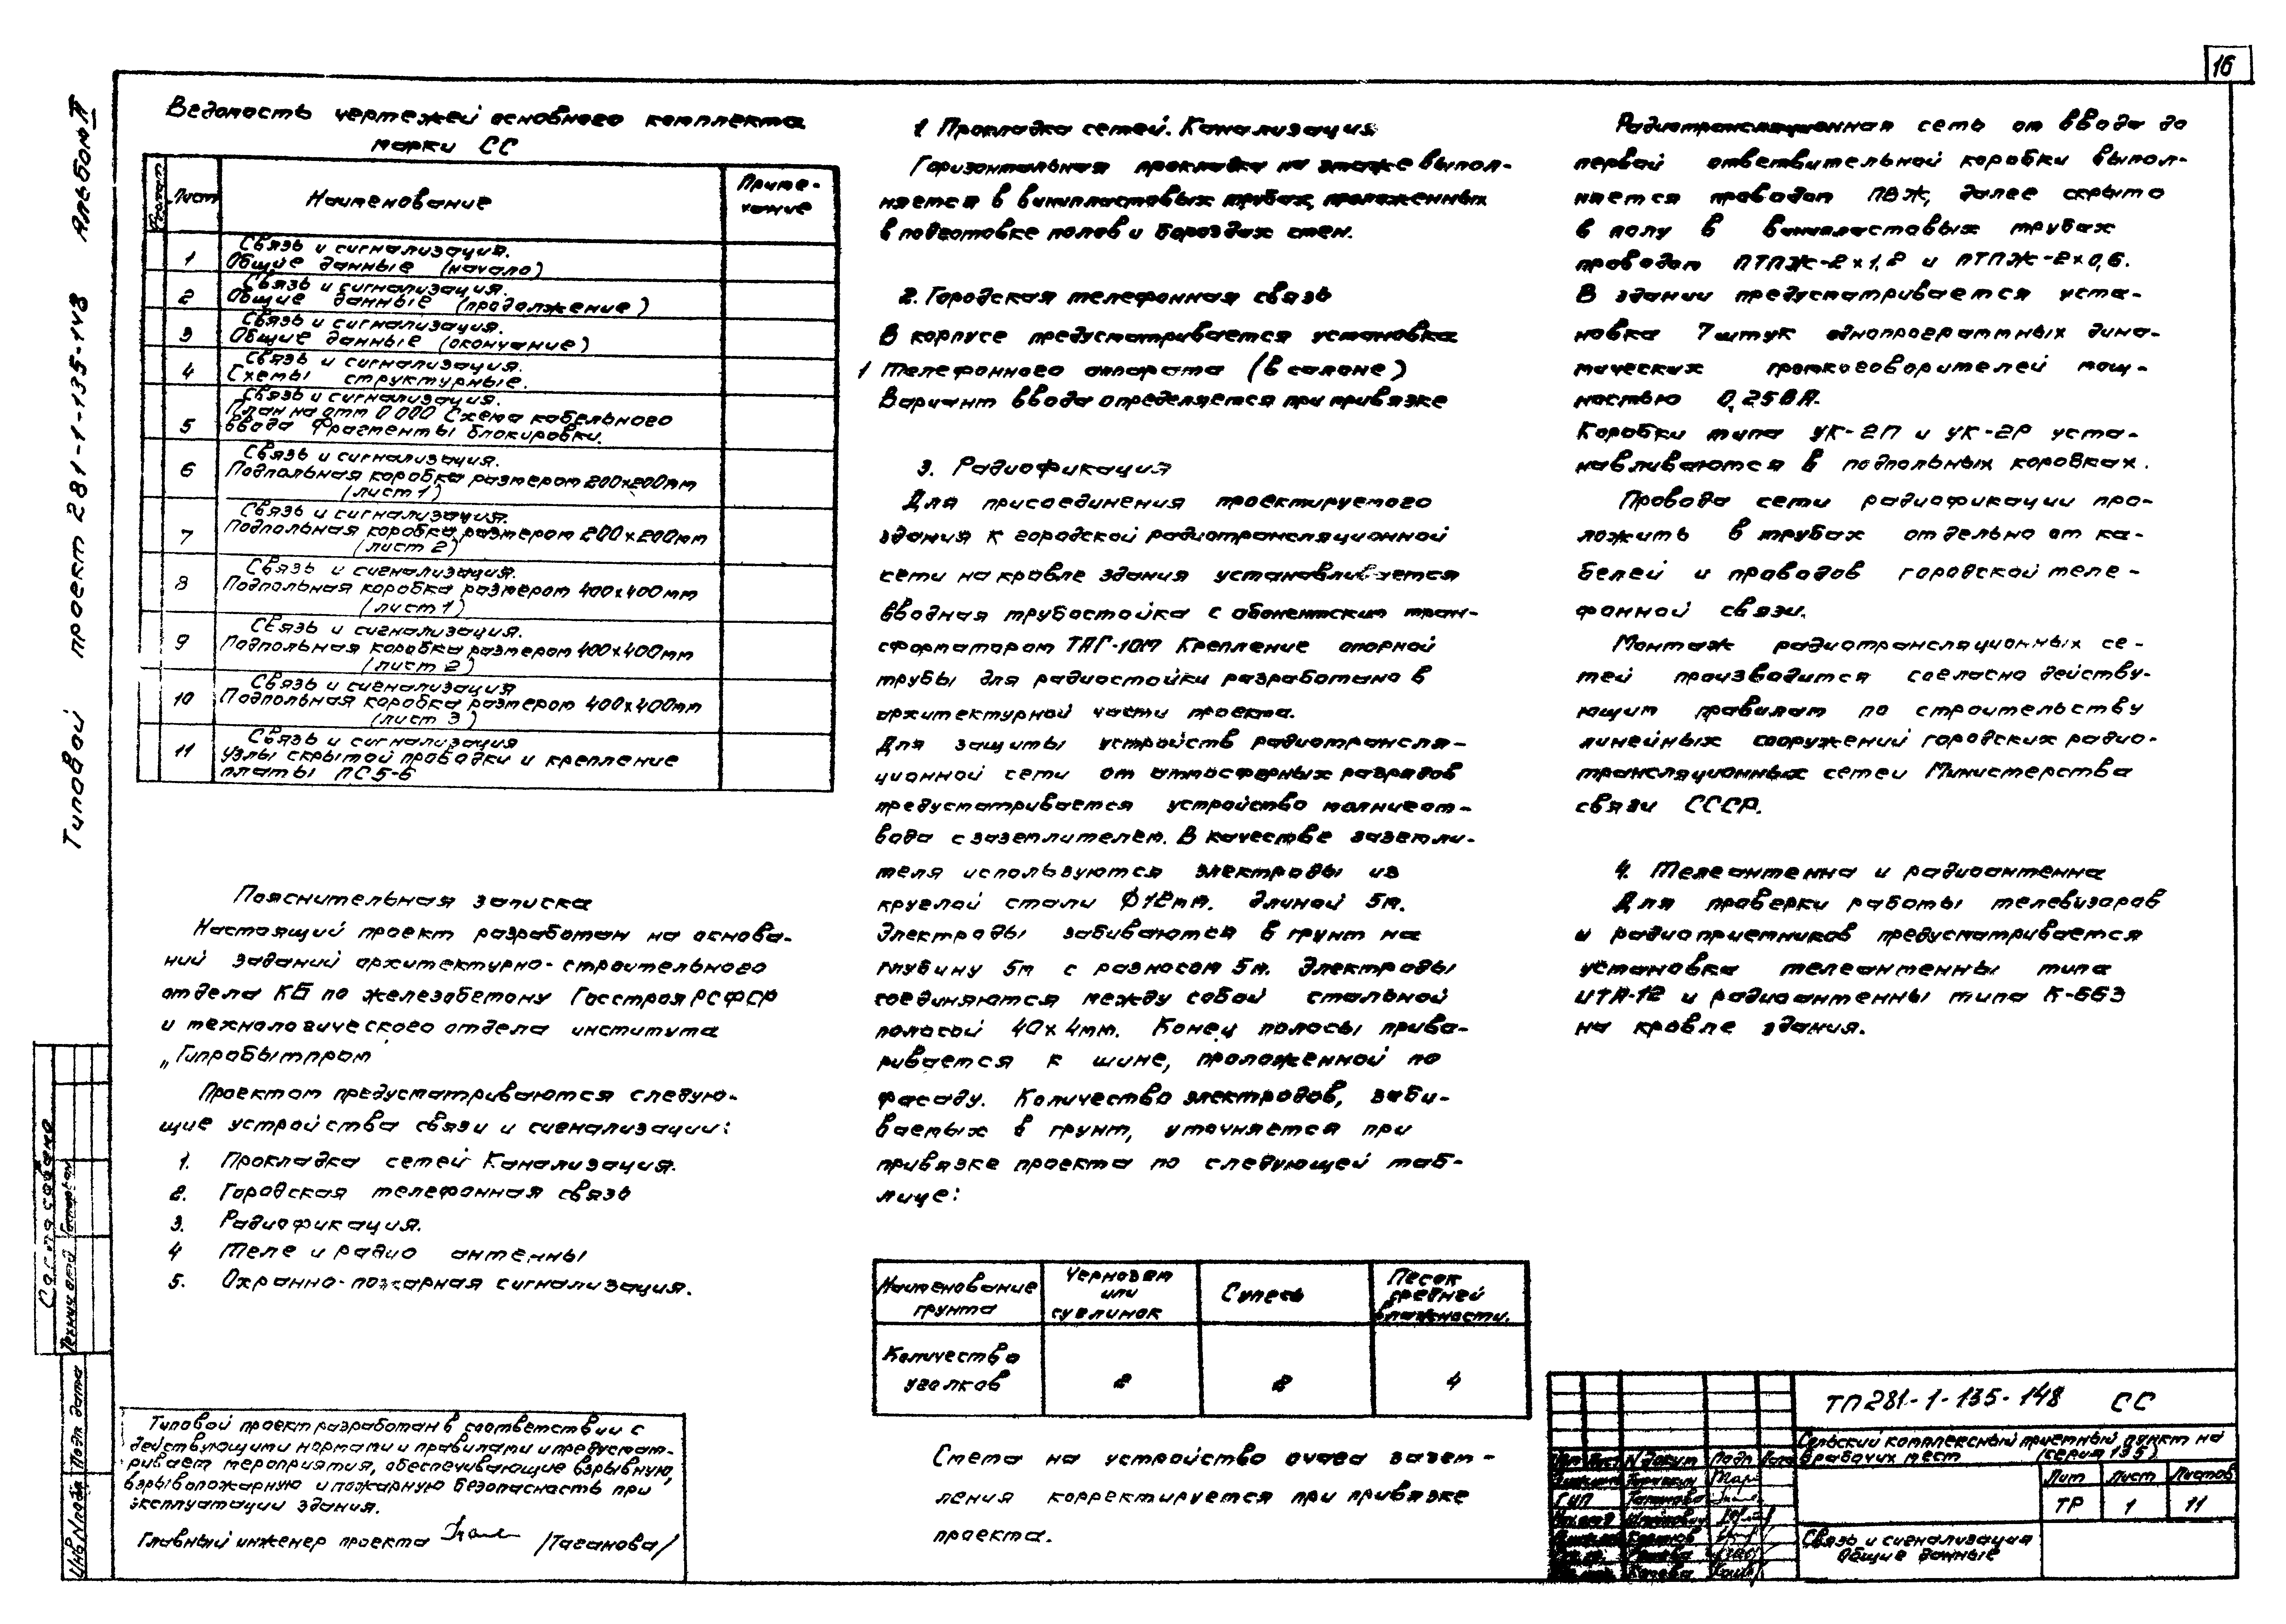 16
Типовой проект 281-1-135-148 Альбом II
Ведомость чертежей основного комплекта
марки СС
Лист
Наименование
Приме-
чание
Связь и сигнализация.
1 Общие данные (начало)
Связь и сигнализация.
2 Общие данные (продолжение)
Связь и сигнализация.
3 Общие данные (окончание)
Связь и сигнализация.
4 Схемы структурные.
Связь и сигнализация.
План на отм 0 000 Схема кабельного
5 ввода Фрагменты блокировки.
Связь и сигнализация.
6 Подпольная коробка размером 200х200мм
(лист 1)
Связь и сигнализация.
7 Подпольная коробка размером 200х200мм
(лист 2)
Связь и сигнализация.
8 Подпольная коробка размером 400х400мм
(лист 1)
Связь и сигнализация.
9 Подпольная коробка размером 400х400мм
(лист 2)
Связь и сигнализация
10 Подпольная коробка размером 400х400мм
(лист 3)
Связь и сигнализация
11 Узлы скрытой проводки и крепление
платы ПС5-6
Пояснительная записка
Настоящий проект разработан на основа-
нии заданий архитектурно-строительного
отдела КБ по железобетону Госстроя РСФСР
и технологического отдела института
„Гипробытпром
Проектом предусматриваются следую-
щие устройства связи и сигнализации:
1. Прокладка сетей Канализация.
2. Городская телефонная связь
3. Радиофикация.
4 Теле и радио антенны
5. Охранно-пожарная сигнализация.
Типовой проект разработан в соответствии с
действующими нормами и правилами и предусмат-
ривает мероприятия, обеспечивающие взрывную,
взрывопожарную и пожарную безопасность при
эксплуатации здания.
Главный инженер проекта /Таганова/
1 Прокладка сетей. Канализация
Горизонтальная прокладка по этаже выпол-
няется в винипластовых трубах, проложенных
в подготовке полов и бороздах стен.
2. Городская телефонная связь
В корпусе предусматривается установка
1 телефонного аппарата (в салоне)
Вариант ввода определяется при привязке
3. Радиофикация
Для присоединения проектируемого
здания к городской радиотрансляционной
сети на кровле здания устанавливается
вводная трубостойка с абонентским тран-
сформатором ТАГ-10М Крепление опорной
трубы для радиостойки разработано в
архитектурной части проекта.
Для защиты устройств радиотрансля-
ционной сети от атмосферных разрядов
предусматривается устройство молниеот-
вода с заземлителем. В качестве заземли-
теля используются электроды из
круглой стали Ø12мм. длиной 5м.
Электроды забиваются в грунт на
глубину 5м с разносом 5м. Электроды
соединяются между собой стальной
полосой 40х4мм. Конец полосы прива-
ривается к шине, проложенной по
фасаду. Количество электродов, заби-
ваемых в грунт, уточняется при
привязке проекта по следующей таб-
лице:
Наименование грунта
Чернозем или суглинок
Супесь
Песок средней влажности.
Количество уголков
2
2
4
Смета на устройство очага зазем-
ления корректируется при привязке
проекта.
Радиотрансляционная сеть от ввода до
первой ответвительной коробки выпол-
няется проводом ПВЖ, далее скрыто
в полу в винипластовых трубах
проводом ПТПЖ-2х1,2 и ПТПЖ-2х0,6.
В здании предусматривается уста-
новка 7 штук однопрограммных дина-
мических громкоговорителей мощ-
ностью 0,25ВА.
Коробки типа УК-2П и УК-2Р уста-
навливаются в подпольных коробках.
Провода сети радиофикации про-
ложить в трубах отдельно от ка-
белей и проводов городской теле-
фонной связи.
Монтаж радиотрансляционных се-
тей производится согласно действу-
ющим правилам по строительству
линейных сооружений городских радио-
трансляционных сетей Министерства
связи СССР.
4. Телеантенна и радиоантенна
Для проверки работы телевизоров
и радиоприемников предусматривается
установка телеантенны типа
ИТА-12 и радиоантенны типа К-663
на кровле здания.
ТП 281-1-135-148 СС
Сельский комплексный приемный пункт на
8 рабочих мест (серия 135)
Лит Лист Листов
ТР 1 11
Связь и сигнализация
Общие данные
N докум Подп
ГИП Таганова
Согласовано
Инв.N подл Подп дата